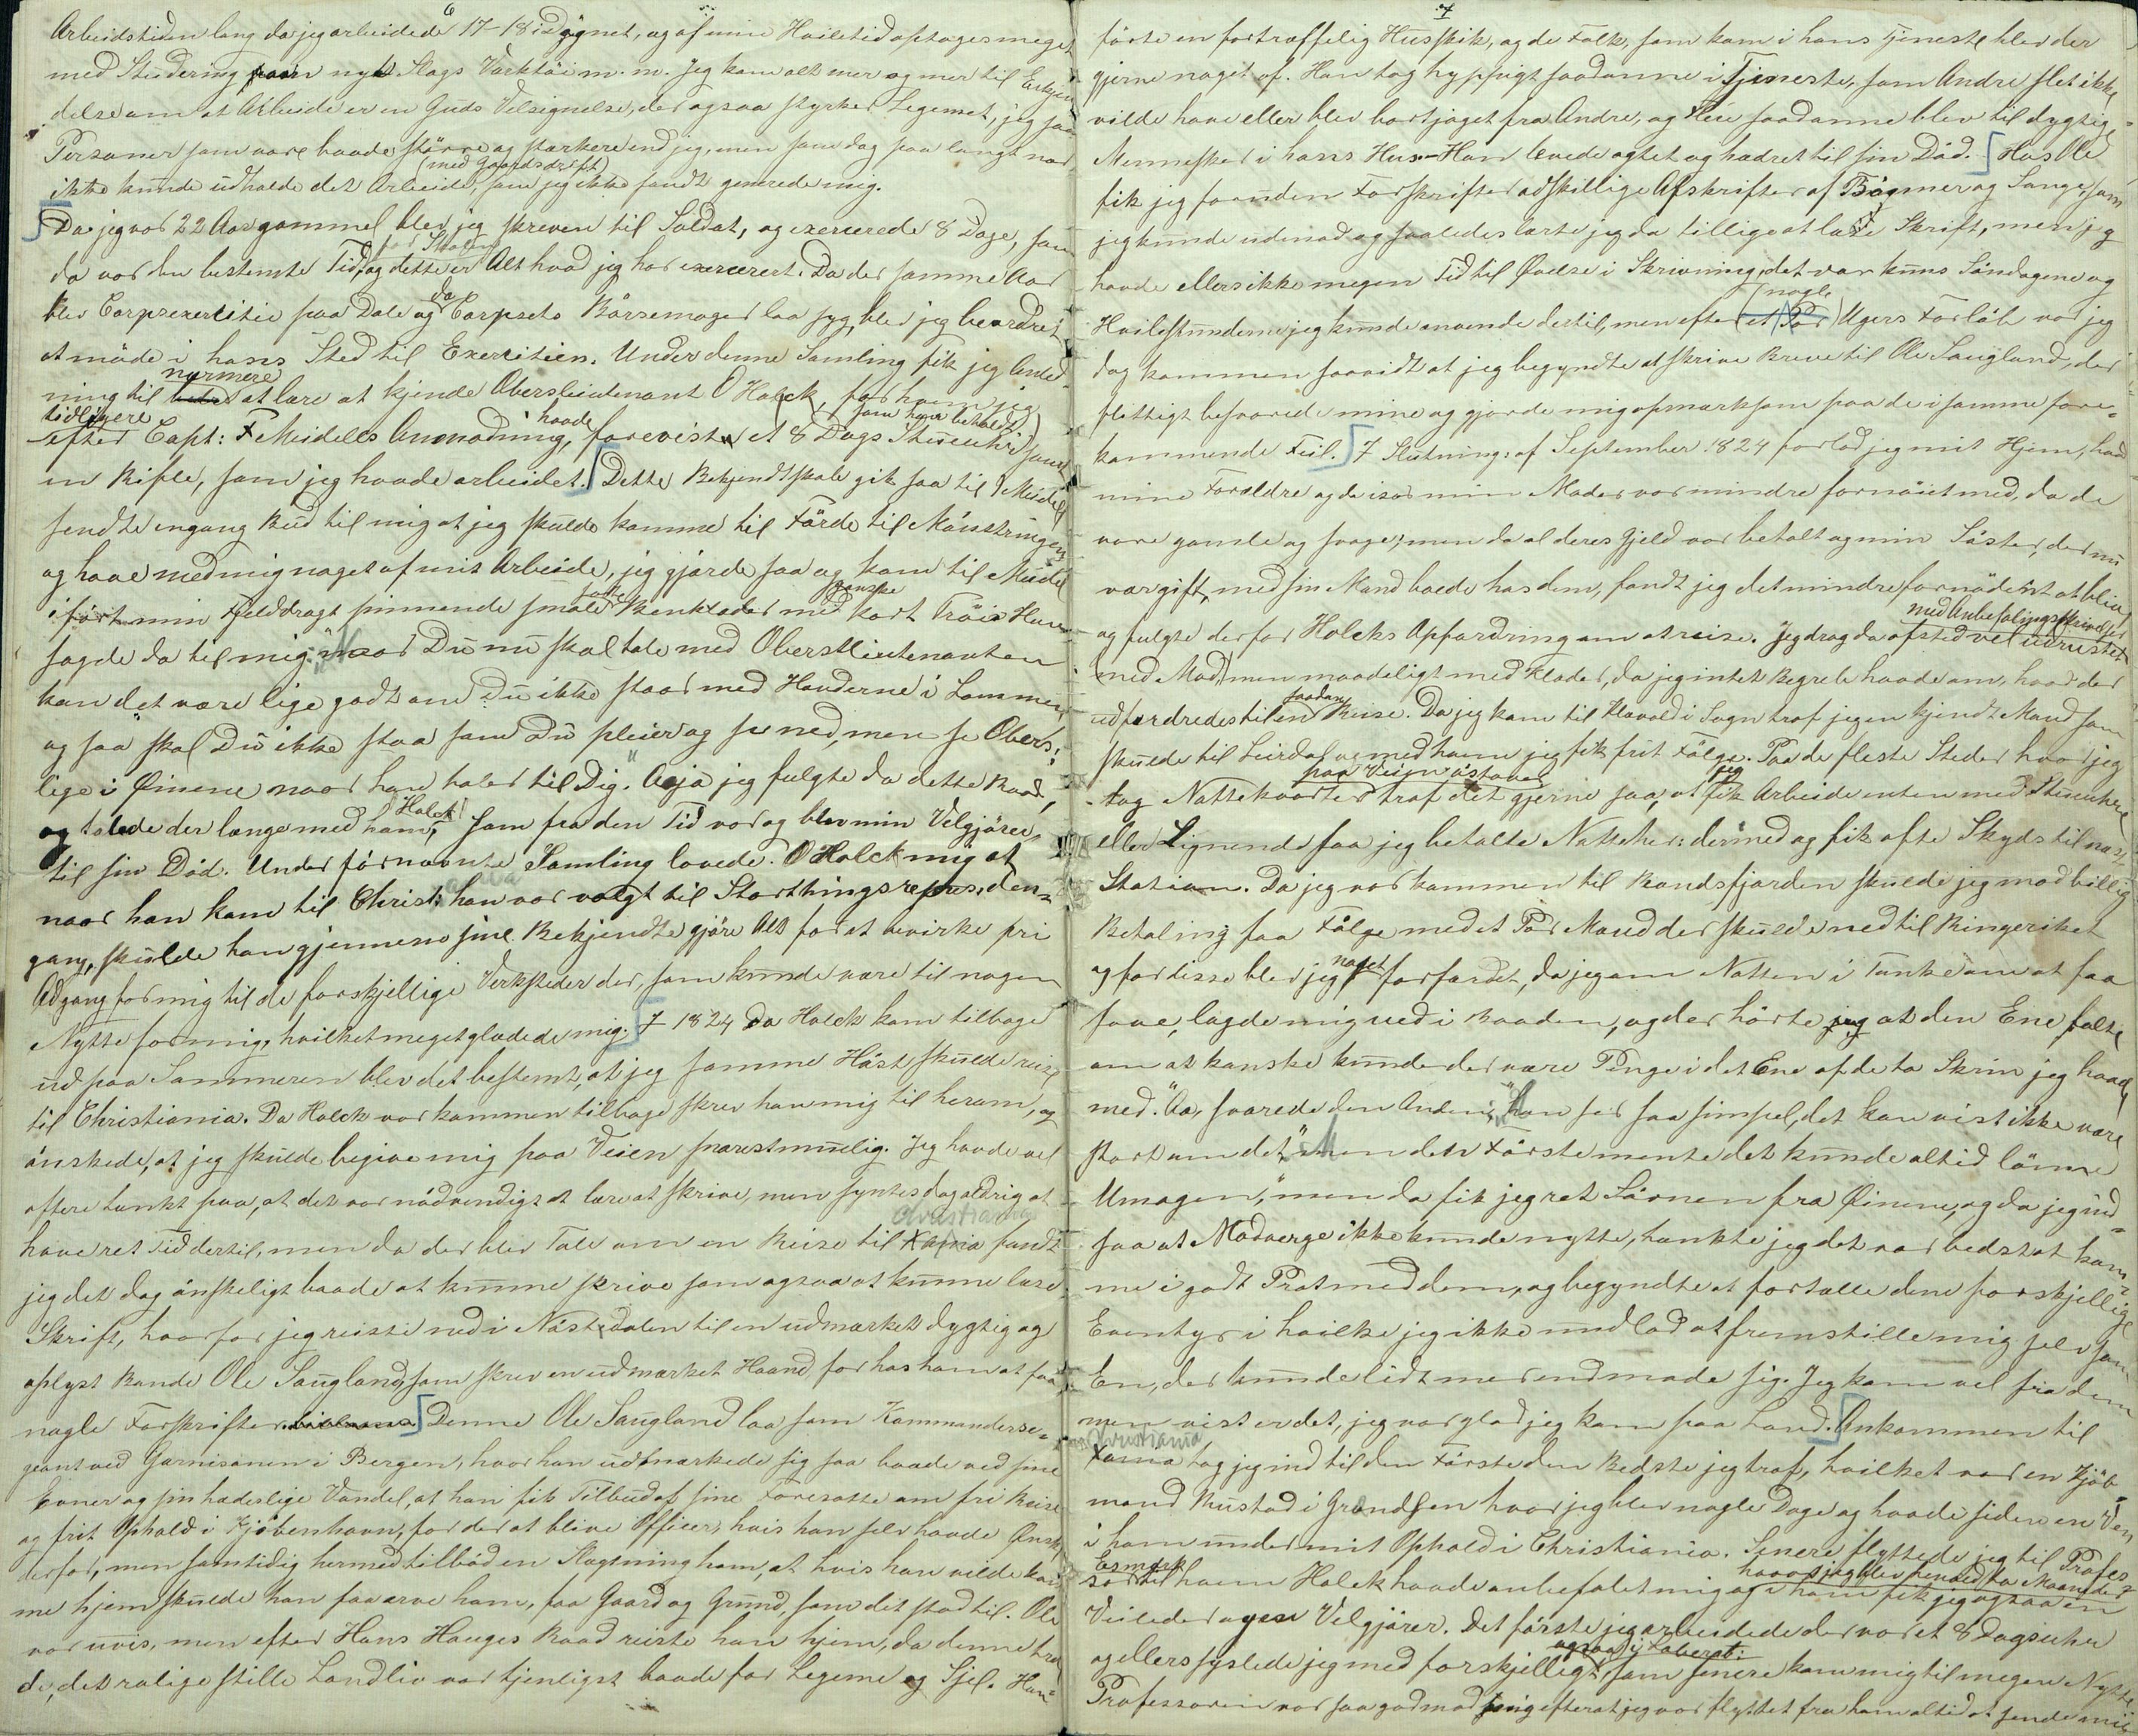 6
Arbeidstiden lang da jeg arbeidede 17-18 i Døgnet, og af min Hviletid optoges meget
med Studering paa en nyt Slags Værktöi m. m. Jeg kom alt mer og mer til Erkjen
delse om at Arbeide er en Guds Velsignelse, der ogsaa styrker Legemet, jeg saa
Personer som vare baade större og stærkere end jeg, men som dog paa langt nær
(med Gaardsdrift)
ikke kunde udholde det Arbeide, som jeg ikke fandt generede mig.
Da jeg var 22 Aar gammel blev jeg skreven til Soldat, og exercerede 8 Dage, som
for Skolen
da var den bestemte Tid, og dette er Alt hvad jeg har exerceret. Da der samme Aar
da
blev Corpsexercitie paa Dale og Corpsets Börsemager laa syg, blev jeg beordret
at möde i hans Sted til Exercitien. Under denne Samling fik jeg Anled
nærmere
ning til at lære at kjende Oberstlieutenant O Holck, for hvem jeg
tidligere havde som han beholdt
efter Capt: F Meidells Anmodning, forevist et 8 Dags Stueuhr samt
en Rifle, som jeg havde arbeidet. Dette Bekjendtskab gik saa til Meidell
sendte engang Bud til mig at jeg skulde komme til Förde til Mönstringen
og have med mig noget af mit Arbeide, jeg gjorde saa og kom til Meidell
sorte ganske
iført min Fjelddragt pinnende smale Benklæder med kort Tröie Han
sagde da til mig "Naar Du nu skal tale med Oberstlieutenanten
kan det være lige godt om Du ikke staar med Hænderne i Lommen
og saa skal Du ikke staa som Du pleier og se ned, men se Oberst:
lige i Øinene naar han taler til Dig." Aaja jeg fulgte da dette Raad,
Holck
og talede der længe med ham, som fra den Tid var og blev min Velgjörer
til sin Död. Under förnævnte Samling lovede O Holck mig at
naar han kom til Christ: han var valgt til Storthingsrepres. den
gang, skulde han gjennem sine Bekjendte gjöre Alt for at bevirke fri
Adgang for mig til de forskjellige Verksteder der, som kunde være til nogen
Nytte for mig, hvilket meget glædede mig. I 1824 da Holck kom tilbage
ud paa Sommeren blev det bestemt, at jeg samme Höst skulde reise
til Christiania. Da Holck var kommen tilbage skrev han mig til herom, og
önskede, at jeg skulde begive mig paa Veien snarestmuelig. Jeg havde vel
oftere tænkt paa, at det var nödvendigt at lære at skrive, men syntes dog aldrig at
Christiania
have ret Tid dertil, men da der blev Tale om en Reise til Xania fandt
jeg det dog önskeligt baade at kunne skrive som ogsaa at kunne læse
Skrift, hvorfor jeg reiste ned i Næstdalen til en udmærket dygtig og
oplyst Bonde Ole Saugland, som skrev en udmærket Haand, for hos ham at faa
nogle Forskrifter. Denne Ole Saugland laa som Kommanderser-
geant ved Garnisonen i Bergen, hvor han udmærkede sig saa baade ved sine
Evner og sin hæderlige Vandel, at han fik Tilbud af sine Foresatte om fri Reise
og frit Ophold i Kjöbenhavn, for der at blive Officer, hvis han selv havde Ønske
derfor, men samtidig hermed tilböd en Slægtning ham, at hvis han vilde kom
me hjem skulde han faa arve ham, faa Gaard og Grund, som det stod til. Ole
var uvis, men efter Hans Hauges Raad reiste han hjem, da denne tro
de, det rolige stille Landliv var tjenligst baade for Legeme og Sjel. Han
7
förte en fortræffelig Husskik, og de Folk, som kom i hans Tjeneste blev der
gjerne noget af. Han tog hyppigt saadanne i Tjeneste, som Andre slet ikke
vilde have eller blev bortjaget fra Andre, og slige saadanne blev til dygtige
Mennesker i hans Hus. Han levede agtet og hædret til sin Död. Hos Ole
fik jeg foruden Forskrifter adskillige Afskrifter af Bögmer og Sange, som
jeg kunde udenad og saaledes lærte jeg da tillige at læse Skrift, men jeg
havde ellers ikke megen Tid til Øvelse i Skrivning, det var kuns Söndagene og
(nogle
Hvilestunderne jeg kunde anvende dertil, men efter et Par Ugers Forlöb var jeg
dog kommen saavidt at jeg begyndte at skrive Breve til Ole Saugland, der
flittigt besvarede mine og gjorde mig opmærksom paa de i samme fore-
kommende Feil. I Slutning: af September 1824 forlod jeg mit Hjem, hvad
mine Forældre og da især min Moder var mindre fornöiet med, da de
vare gamle og svage, men da al deres Gjeld var betalt og min Söster, der nu
var gift, med sin Mand boede hos dem, fandt jeg det mindre fornödent at blive
med Anbefalingsskrivelser
og fulgte derfor Holcks Opfordring om at reise. Jeg drog da afsted vel udrustet
med Mad men maadeligt med Klæder, da jeg intet Begreb havde om, hvad der
saadan
udfordredes til en Reise. Da jeg kom til Havold i Sogn traf jeg en kjendt Mand som
skulde til Leirdal og med ham jeg fik frit Fölge. Paa de fleste Steder hvor jeg
paa Veien östover jeg
tog Nattekvarter traf det gjerne saa, at fik Arbeide enten med Stueuhre
eller Lignende saa jeg betalte Natteher: dermed og fik ofte Skyds til næste
Station. Da jeg var kommen til Randsfjorden skulde jeg mod billig
Betaling faa Fölge med et Par Mænd der skulde ned til Ringeriket
noget
og for disse blev jeg forfærdet, da jeg om Natten i Tanke om at faa
sove, lagde mig ned i Baaden, og der hörte jeg at den Ene talte
om at kanske kunde der være Penge i det Ene af de to Skrin jeg havde
med. "Aa, svarede den Anden, "han ser saa simpel, det kan vist ikke være
stort om det," men den Förste mente det kunde altid lönne
Umagen," men da fik jeg ret Sövnen fra Øinene, og da jeg ind-
saa at Modværge ikke kunde nytte, tænkte jeg det var bedst at kom-
me i godt Prat med dem, og begyndte at fortælle dem forskjellige
Eventyr i hvilke jeg ikke undlod at fremstille mig selv som
En, der kunde lidt mer end made sig. Jeg kom vel fra dem
men vist er det, jeg var glad jeg kom paa Land. Ankommen til
Christiania
Xania tog jeg ind til den Förste den Bedste jeg traf, hvilket var en Kjöb-
mand Rustad i Grændsen hvor jeg blev nogle Dage og havde siden en Ven
i ham under mit Ophold i Christiania. Senere flyttede jeg til Profes
Esmark hvor jeg blev henved to Maaneder
sor til hvem Holck havde anbefalet mig og i ham fik jeg ogsaa en
Veileder og en Velgjörer. Det förste jeg arbeidede der var et 8 Dagsuhr
ogsaa i Laborat:
og ellers syslede jeg med forskjelligt, som senere kom mig til megen Nytte
Professoren var saa god mod mig efterat jeg var flyttet fra ham altid at sende mig